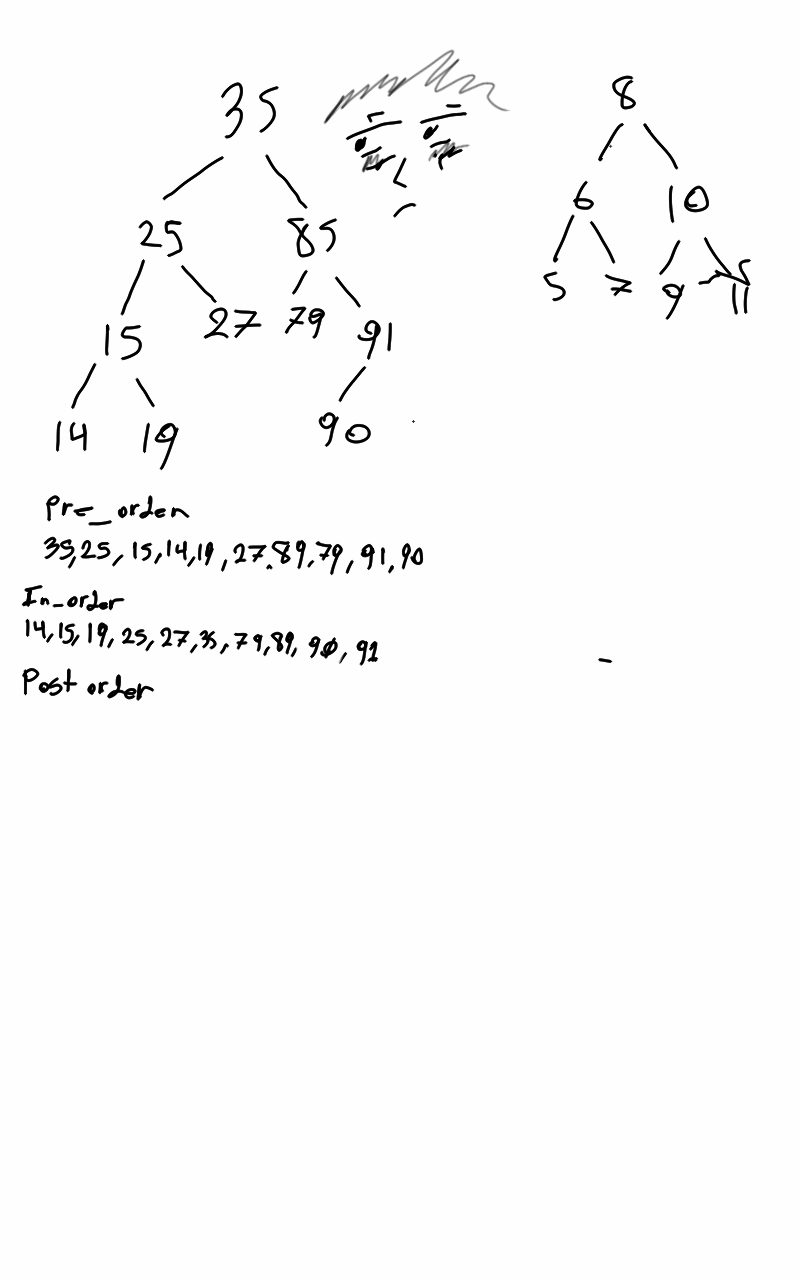 35
8
25 85
6 10
15 27 79 91
5 7 9 11
14 19 90
Pre_orden
35,25, 15,14,19, 27,89,79, 91,90
In_order
14,15, 19, 25, 27,35, 79,89, 90, 91
Post order